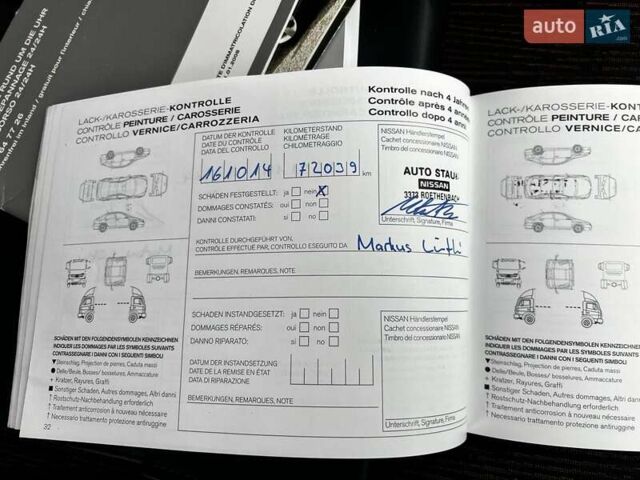 auto RIA .com
RUND UM DIE UHR
LACK-/KAROSSERIE-KONTROLLE
CONTRÔLE PEINTURE / CAROSSERIE
CONTROLLO VERNICE/CARROZZERIA
Kontrolle nach 4 Jahren
Contrôle après 4 années
Controllo dopo 4 anni
DATUM DER KONTROLLE
DATE DU CONTRÔLE
DATA DEL CONTROLLO
161014
KILOMETERSTAND
KILOMÉTRAGE
CHILOMETRAGGIO
72039 km
NISSAN Händlerstempel
Cachet concessionnaire NISSAN
Timbro del concessionario NISSAN
AUTO STAU
NISSAN
3373 ROETHENBACH
Unterschrift, Signature, Firma
SCHADEN FESTGESTELLT: ja nein X
DOMMAGES CONSTATÉS: oui non
DANNI CONSTATATI: si no
KONTROLLE DURCHGEFÜHRT VON:
CONTRÔLE EFFECTUÉ PAR, CONTROLLO ESEGUITO DA Markus
BEMERKUNGEN, REMARQUES, NOTE
SCHADEN INSTANDGESETZT: ja nein
DOMMAGES RÉPARÉS: oui non
DANNO RIPARATO: si no
NISSAN Händlerstempel
Cachet concessionnaire NISSAN
Timbro del concessionario NISSAN
DATUM DER INSTANDSETZUNG
DATE DE LA REMISE EN ÉTAT
DATA DI RIPARAZIONE
BEMERKUNGEN, REMARQUES, NOTE
Unterschrift, Signature, Firma
SCHÄDEN MIT DEN FOLGENDEN SYMBOLEN KENNZEICHNEN
INDIQUER LES DOMMAGES PAR LES SYMBOLES SUIVANTS
CONTRASSEGNARE I DANNI CON I SEGUENTI SIMBOLI
Steinschlag, Projection de pierres, Caduta massi
Delle/Beule, Bosses/ bosselures, Ammaccature
+ Kratzer, Rayures, Graffi
Sonstiger Schaden, Autres dommages, Altri danni
† Rostschutz-Nachbehandlung erforderlich
† Traitement anticorrosion à nouveau nécessaire
† Necessario trattamento protezione antiruggine
32
LACK-/KAROSSERIE-
CONTRÔLE PEINTURE
CONTROLLO VERNICE